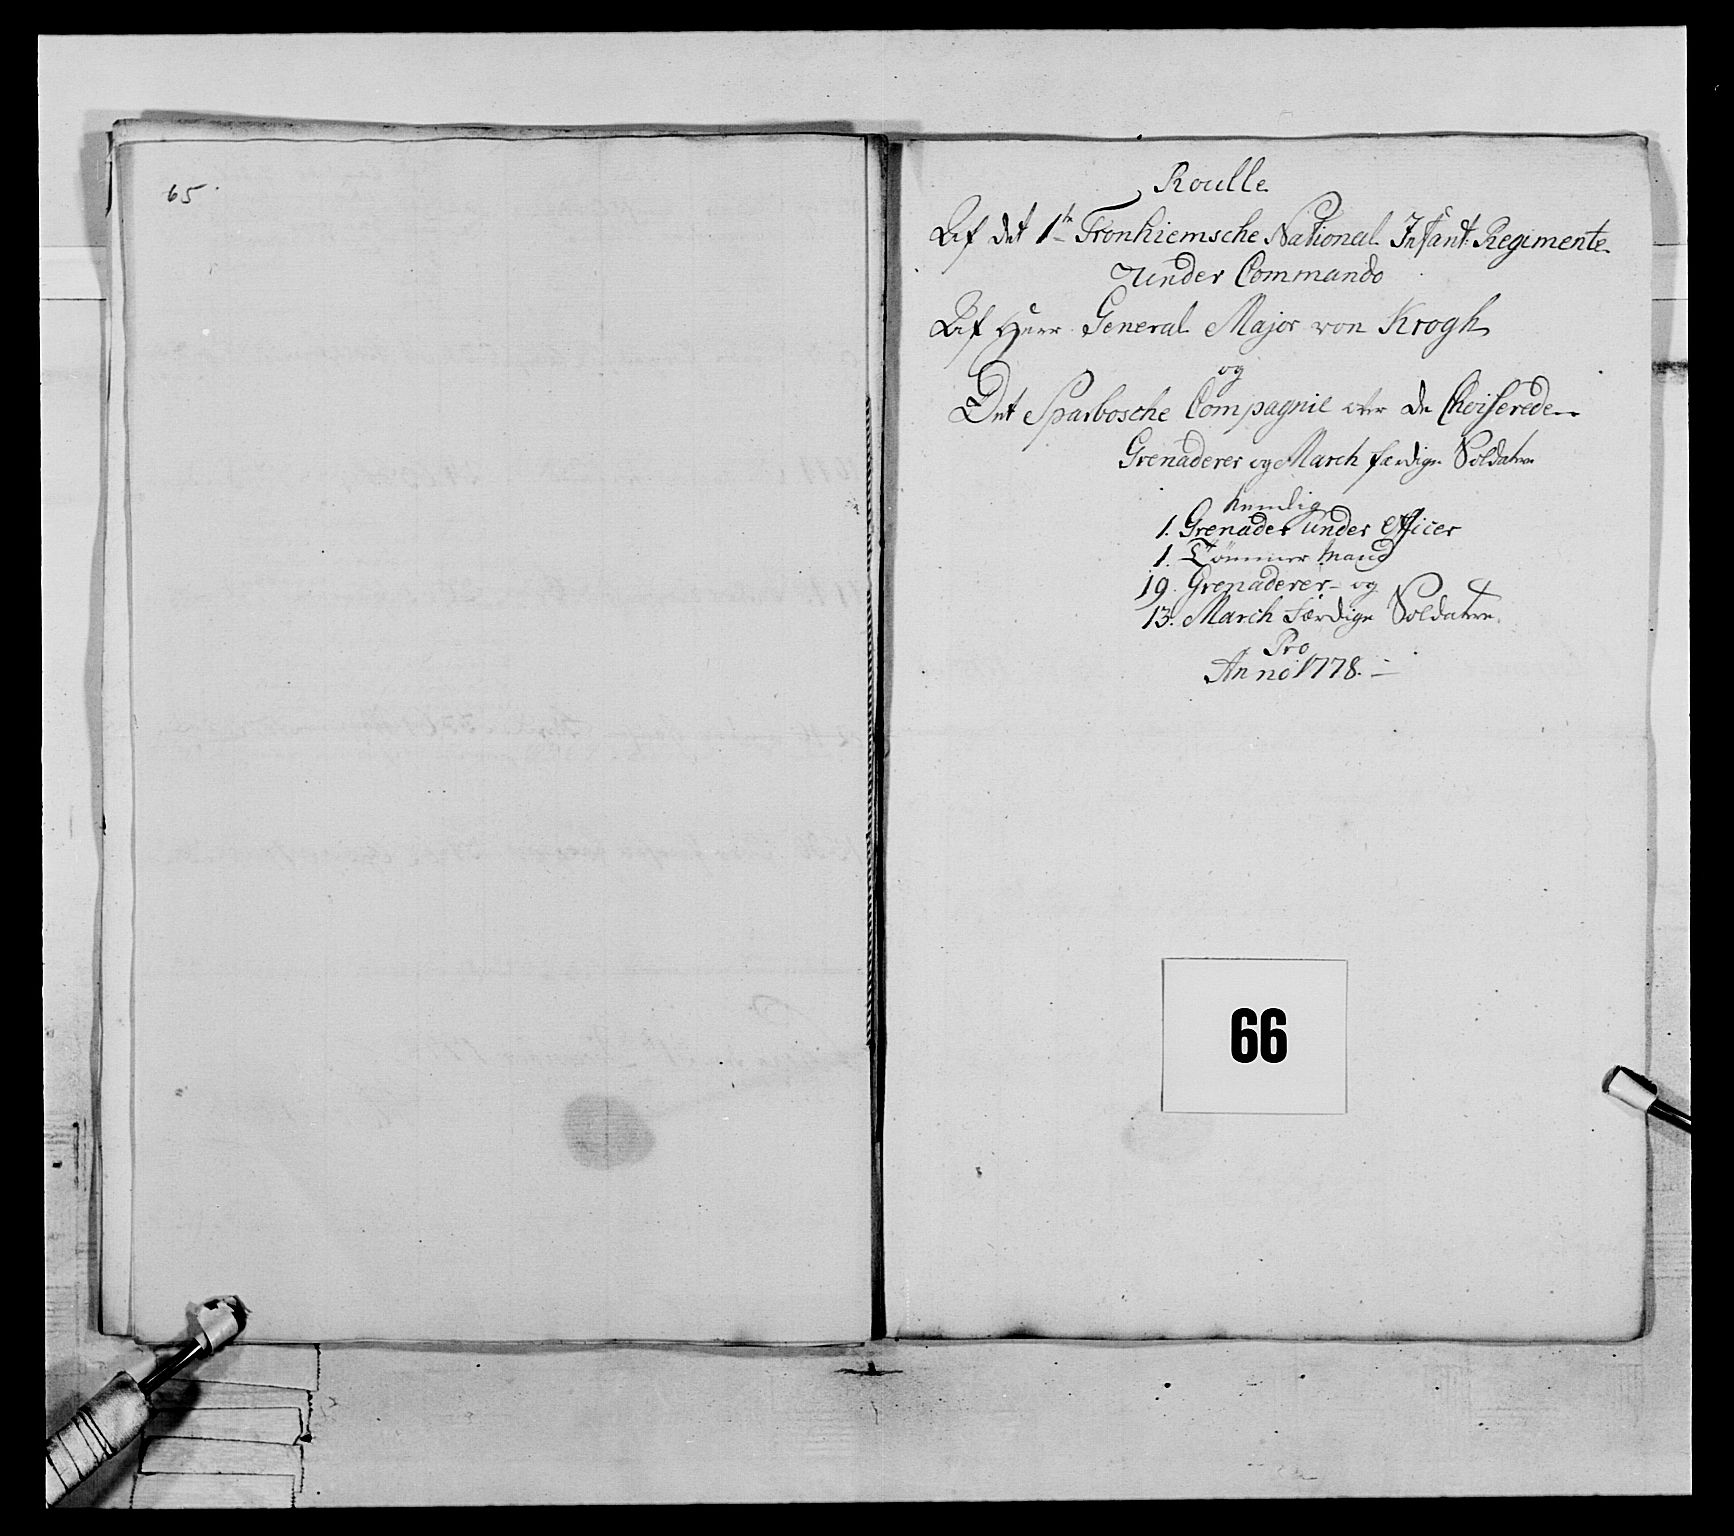 65.
Roulle
Af det 1te Tronhiemsche National Infant: Regimente
Under Commando
Af Herr General Major von Krogh
og
Det Sparbosche Compagnie over de Choiserede
Grenaderer og March færdige Soldater
Nemlig
1. Grenader under Officer
1. Tömmer Mand
19. Grenaderer og
13. March færdige Soldatere.
Pro
Anno 1778.
66